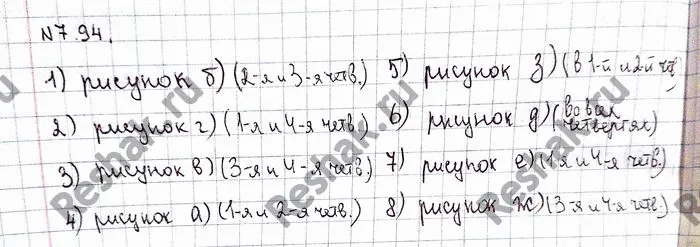 №7.94.
1) рисунок б) (2-я и 3-я четв.)
2) рисунок г) (1-я и 4-я четв.)
3) рисунок в) (3-я и 4-я четв.)
4) рисунок а) (1-я и 2-я четв.)
5) рисунок з) (в 1-й и 2-й чет
6) рисунок д) (во всех
четвертях)
7) рисунок е) (1-я и 4-я четв.)
8) рисунок ж) (3-я и 4-я четв.)
Reshak.ru
Reshak.ru
Reshak.ru